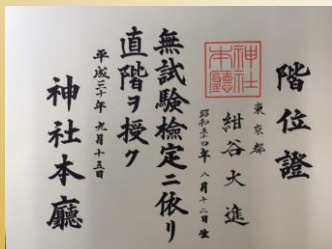 階位證
東京都
紺谷大進
昭和五四年八月十二日生
無試験檢定ニ依リ
直階ヲ授ク
平成三十年九月十五日
神社本廳
神社本廳